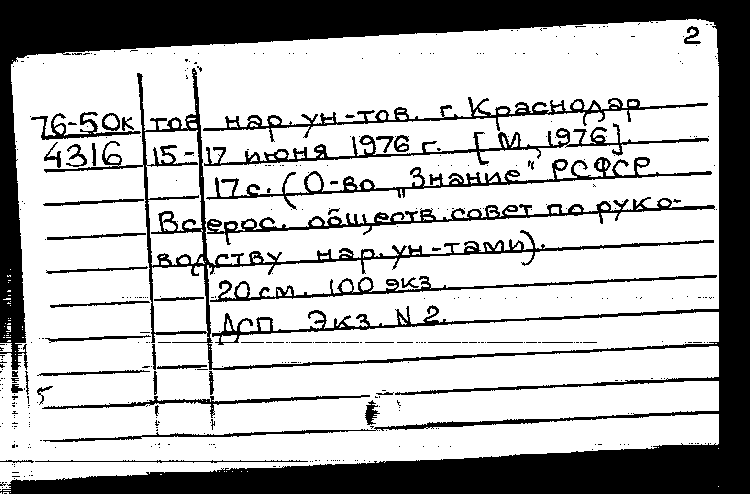 2
76-50к тов нар. ун-тов. г. Краснодар
4316 15-17 июня 1976 г. [М., 1976].
17 с. (О-во „Знание" РСФСР.
Всерос. обществ. совет по руко-
водству нар. ун-тами).
20 см. 100 экз.
ДСП. Экз. N 2.
5